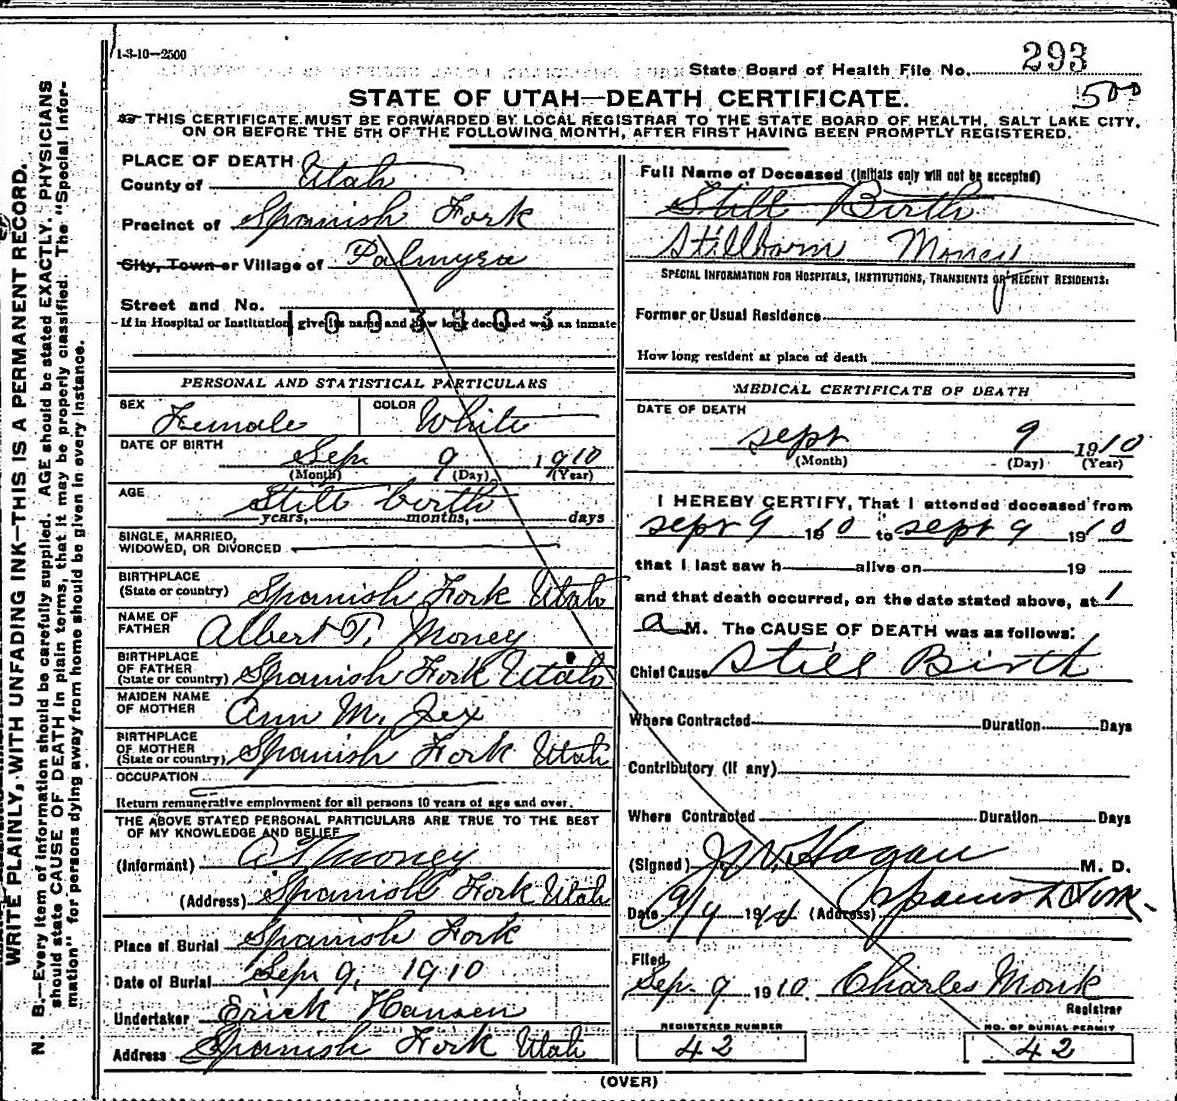 1-3-10—2500
State Board of Health File No. 293
500
STATE OF UTAH—DEATH CERTIFICATE.
THIS CERTIFICATE MUST BE FORWARDED BY LOCAL REGISTRAR TO THE STATE BOARD OF HEALTH, SALT LAKE CITY,
ON OR BEFORE THE 5TH OF THE FOLLOWING MONTH, AFTER FIRST HAVING BEEN PROMPTLY REGISTERED.
WRITE PLAINLY, WITH UNFADING INK—THIS IS A PERMANENT RECORD.
N. B.—Every item of information should be carefully supplied. AGE should be stated EXACTLY. PHYSICIANS
should state CAUSE OF DEATH in plain terms, that it may be properly classified. The "Special Infor-
mation" for persons dying away from home should be given in every instance.
PLACE OF DEATH
County of Utah
Precinct of Spanish Fork
City, Town or Village of Palmyra
Street and No.
If in Hospital or Institution, give its name and how long deceased was an inmate
PERSONAL AND STATISTICAL PARTICULARS
SEX Female COLOR White
DATE OF BIRTH Sep. 9 1910
(Month) (Day) (Year)
AGE Still birth
years, months, days
SINGLE, MARRIED,
WIDOWED, OR DIVORCED
BIRTHPLACE
(State or country) Spanish Fork Utah
NAME OF
FATHER Albert T. Money
BIRTHPLACE
OF FATHER
(State or country) Spanish Fork Utah
MAIDEN NAME
OF MOTHER Ann M. Jex
BIRTHPLACE
OF MOTHER
(State or country) Spanish Fork Utah
OCCUPATION
Return remunerative employment for all persons 10 years of age and over.
THE ABOVE STATED PERSONAL PARTICULARS ARE TRUE TO THE BEST
OF MY KNOWLEDGE AND BELIEF
(Informant) A T Money
(Address) Spanish Fork Utah
Place of Burial Spanish Fork
Date of Burial Sep. 9, 1910
Undertaker Erick Hansen
Address Spanish Fork Utah
Full Name of Deceased (Initials only will not be accepted)
Still Birth
Stillborn Money
SPECIAL INFORMATION FOR HOSPITALS, INSTITUTIONS, TRANSIENTS OR RECENT RESIDENTS:
Former or Usual Residence
How long resident at place of death
MEDICAL CERTIFICATE OF DEATH
DATE OF DEATH
sept 9 1910
(Month) (Day) (Year)
I HEREBY CERTIFY, That I attended deceased from
sept 9 1910 to sept 9 1910
that I last saw h alive on 19
and that death occurred, on the date stated above, at 1
a M. The CAUSE OF DEATH was as follows:
Chief Cause Still Birth
Where Contracted Duration Days
Contributory (if any)
Where Contracted Duration Days
(Signed) J. W. Hagan M. D.
Date (Address) Spanish Fork
Filed
Sep. 9 1910. Charles Monk
Registrar
REGISTERED NUMBER
42
NO. OF BURIAL PERMIT
42
(OVER)